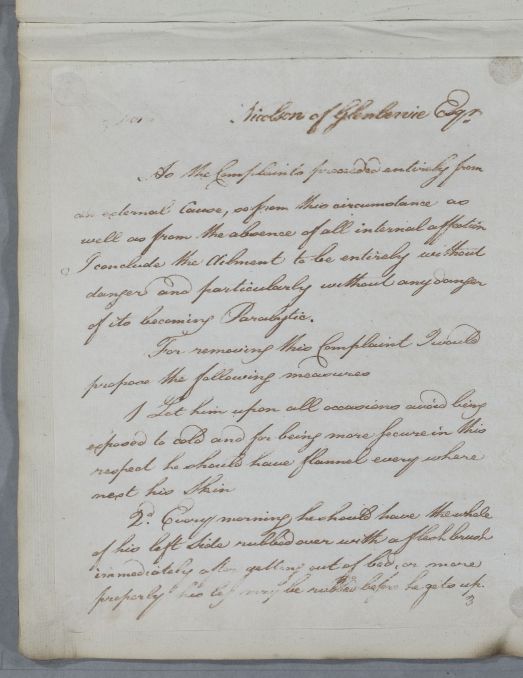 Nicolson of Glenbervie Esqr
As the Complaints proceeded entirely from
an external Cause, so from this circumstance as
well as from the absence of all internal affection
I conclude the Ailment to be entirely without
danger and particularly without any danger
of its becoming Paralytic.
For removing this Complaint I would
propose the following measures
1 Let him upon all occasions avoid being
exposed to cold and for being more secure in this
respect he should have flannel every where
next his Skin
2d. Every morning he should have the whole
of his left Side rubbed over with a flesh brush
immediately after getting out of bed, or more
properly his leg may be rubbed before he gets up.
3